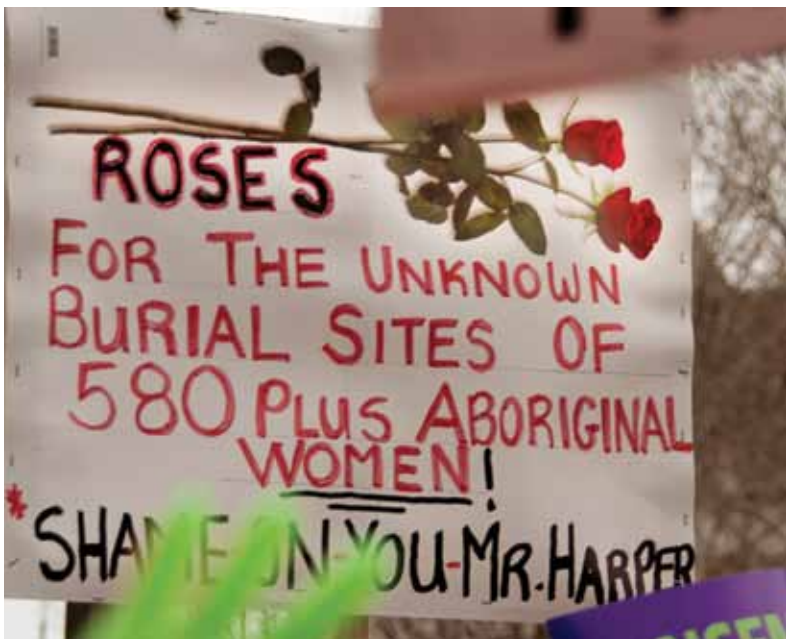 ROSES
FOR THE UNKNOWN
BURIAL SITES OF
580 PLUS ABORIGINAL
WOMEN!
*SHAME-ON-YOU-MR. HARPER